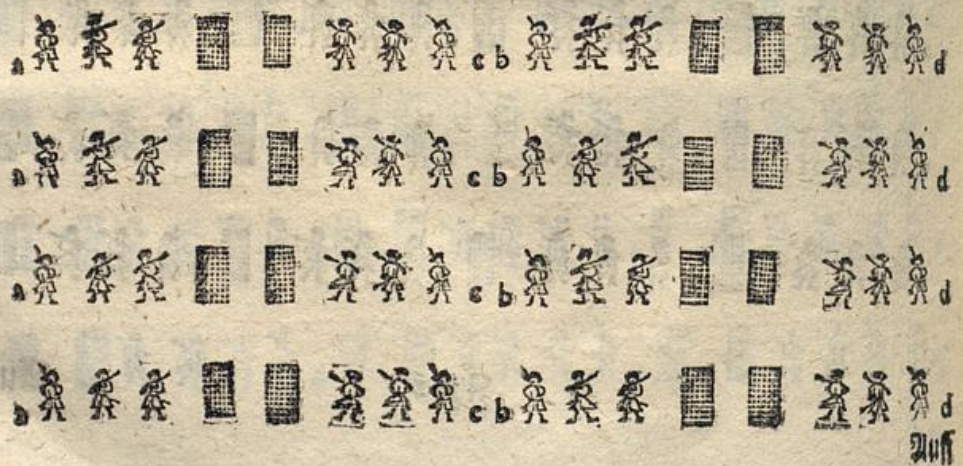 a c b d
a c b d
a c b d
a c b d
Auff